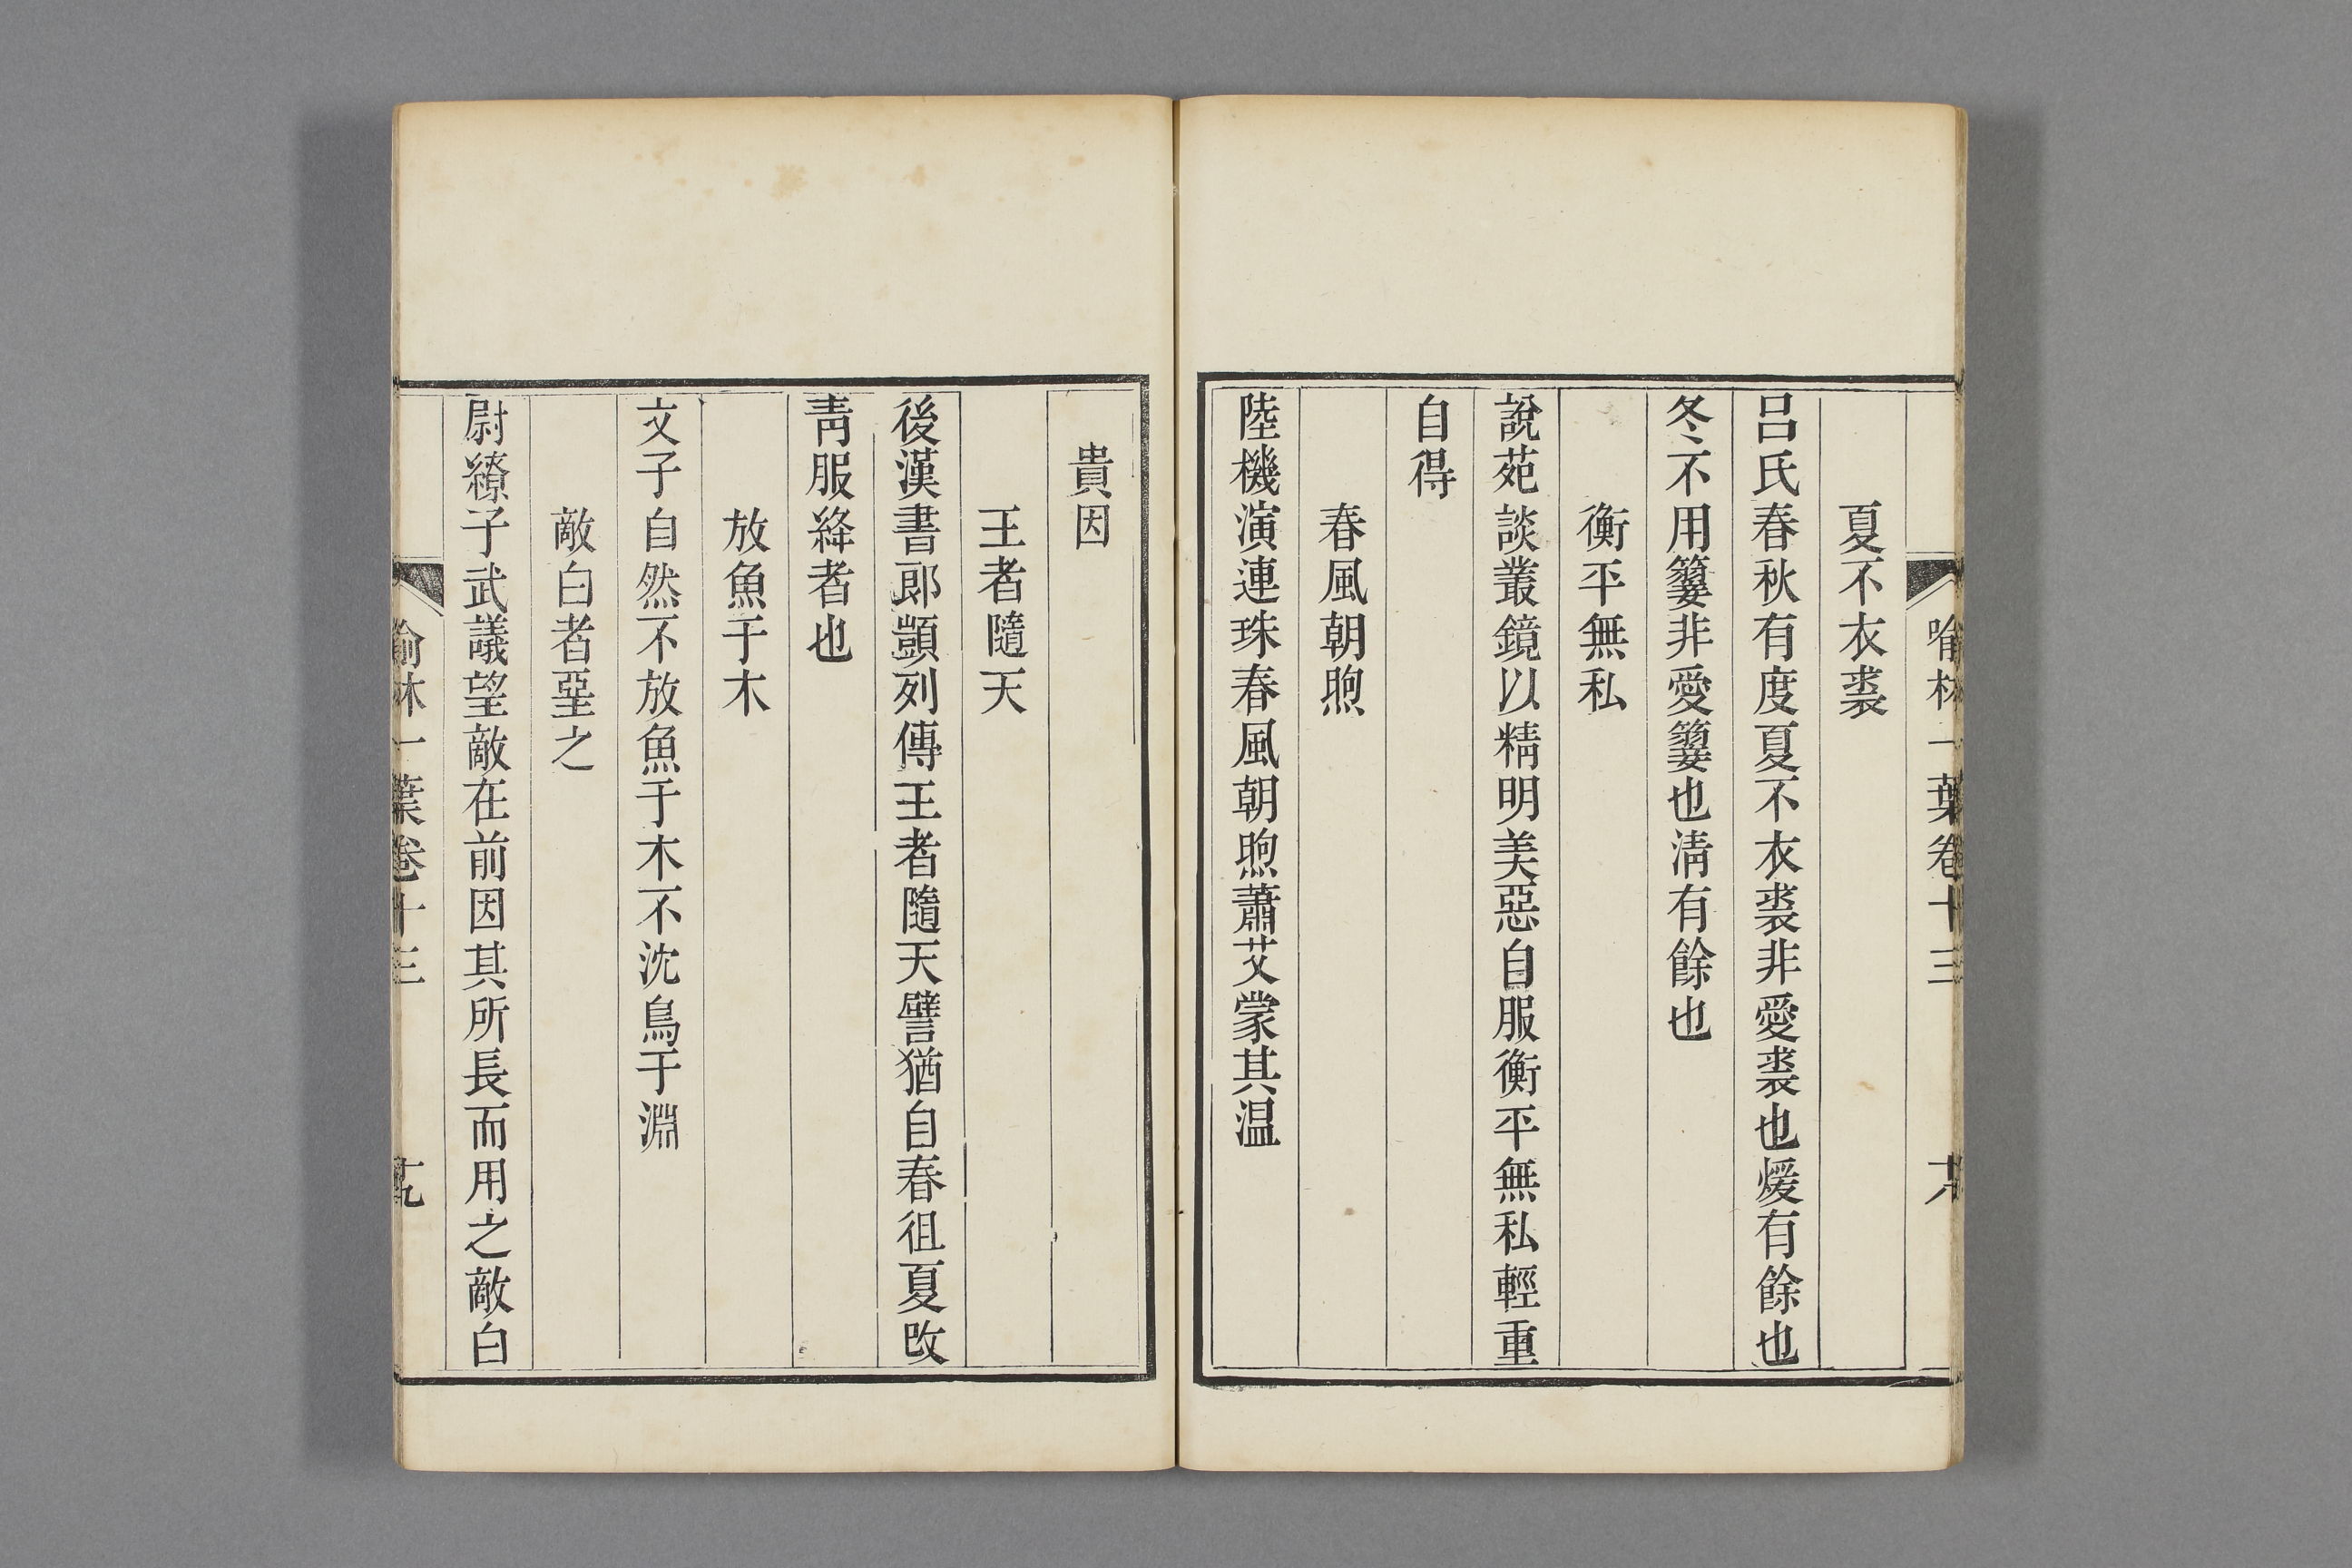 夏不衣裘
呂氏春秋有度夏不衣裘非愛裘也煖有餘也
冬不用䈉非愛䈉也清有餘也
衡平無私
說苑談叢鏡以精明美惡自服衡平無私輕重
自得
春風朝煦
陸機演連珠春風朝煦蕭艾蒙其温
貴因
王者隨天
後漢書郎顗列傳王者隨天譬猶自春徂夏改
靑服絳者也
放魚于木
文子自然不放魚于木不沈鳥于淵
敵白者堊之
尉繚子武議望敵在前因其所長而用之敵白
喻林一葉卷十三